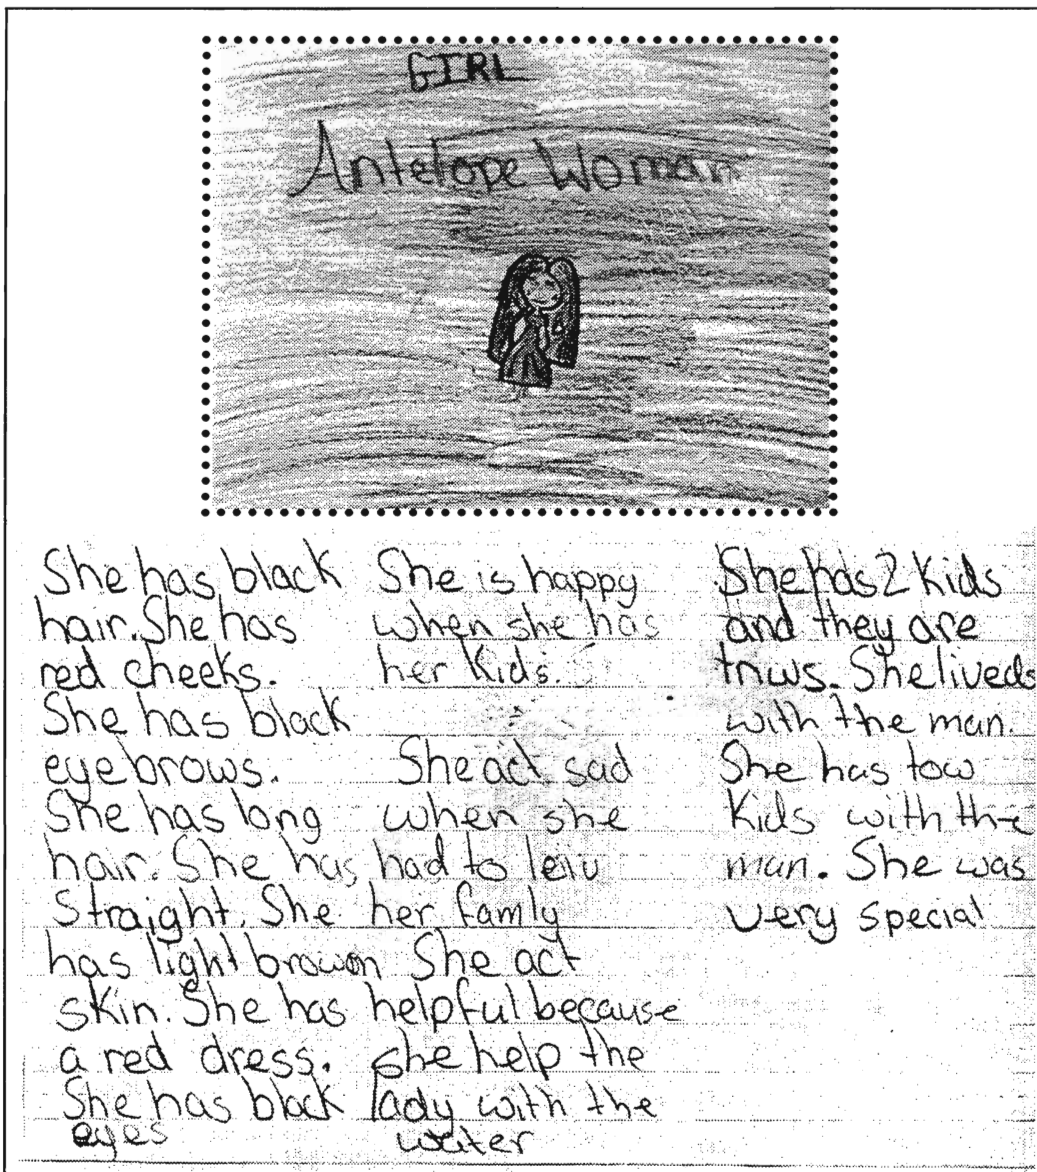 GIRL
Antelope Woman
She has black
hair. She has
red cheeks.
She has black
eyebrows.
She has long
hair. She has
Straight. She
has light browon
skin. She has
a red dress.
She has black
eyes
She is happy
when she has
her Kids.
She act sad
when she
had to leiv
her famly
She act
helpful because
she help the
lady with the
water
She has 2 Kids
and they are
tnws. She liveds
with the man.
She has tow
Kids with the
man. She was
very special